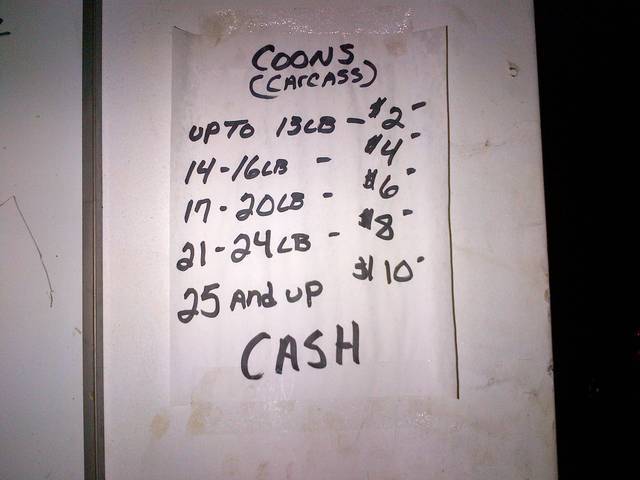 COONS
(CArCASS)
UP TO 13LB - $2-
14-16LB - $4-
17-20LB - $6-
21-24LB - $8-
25 And UP $10-
CASH